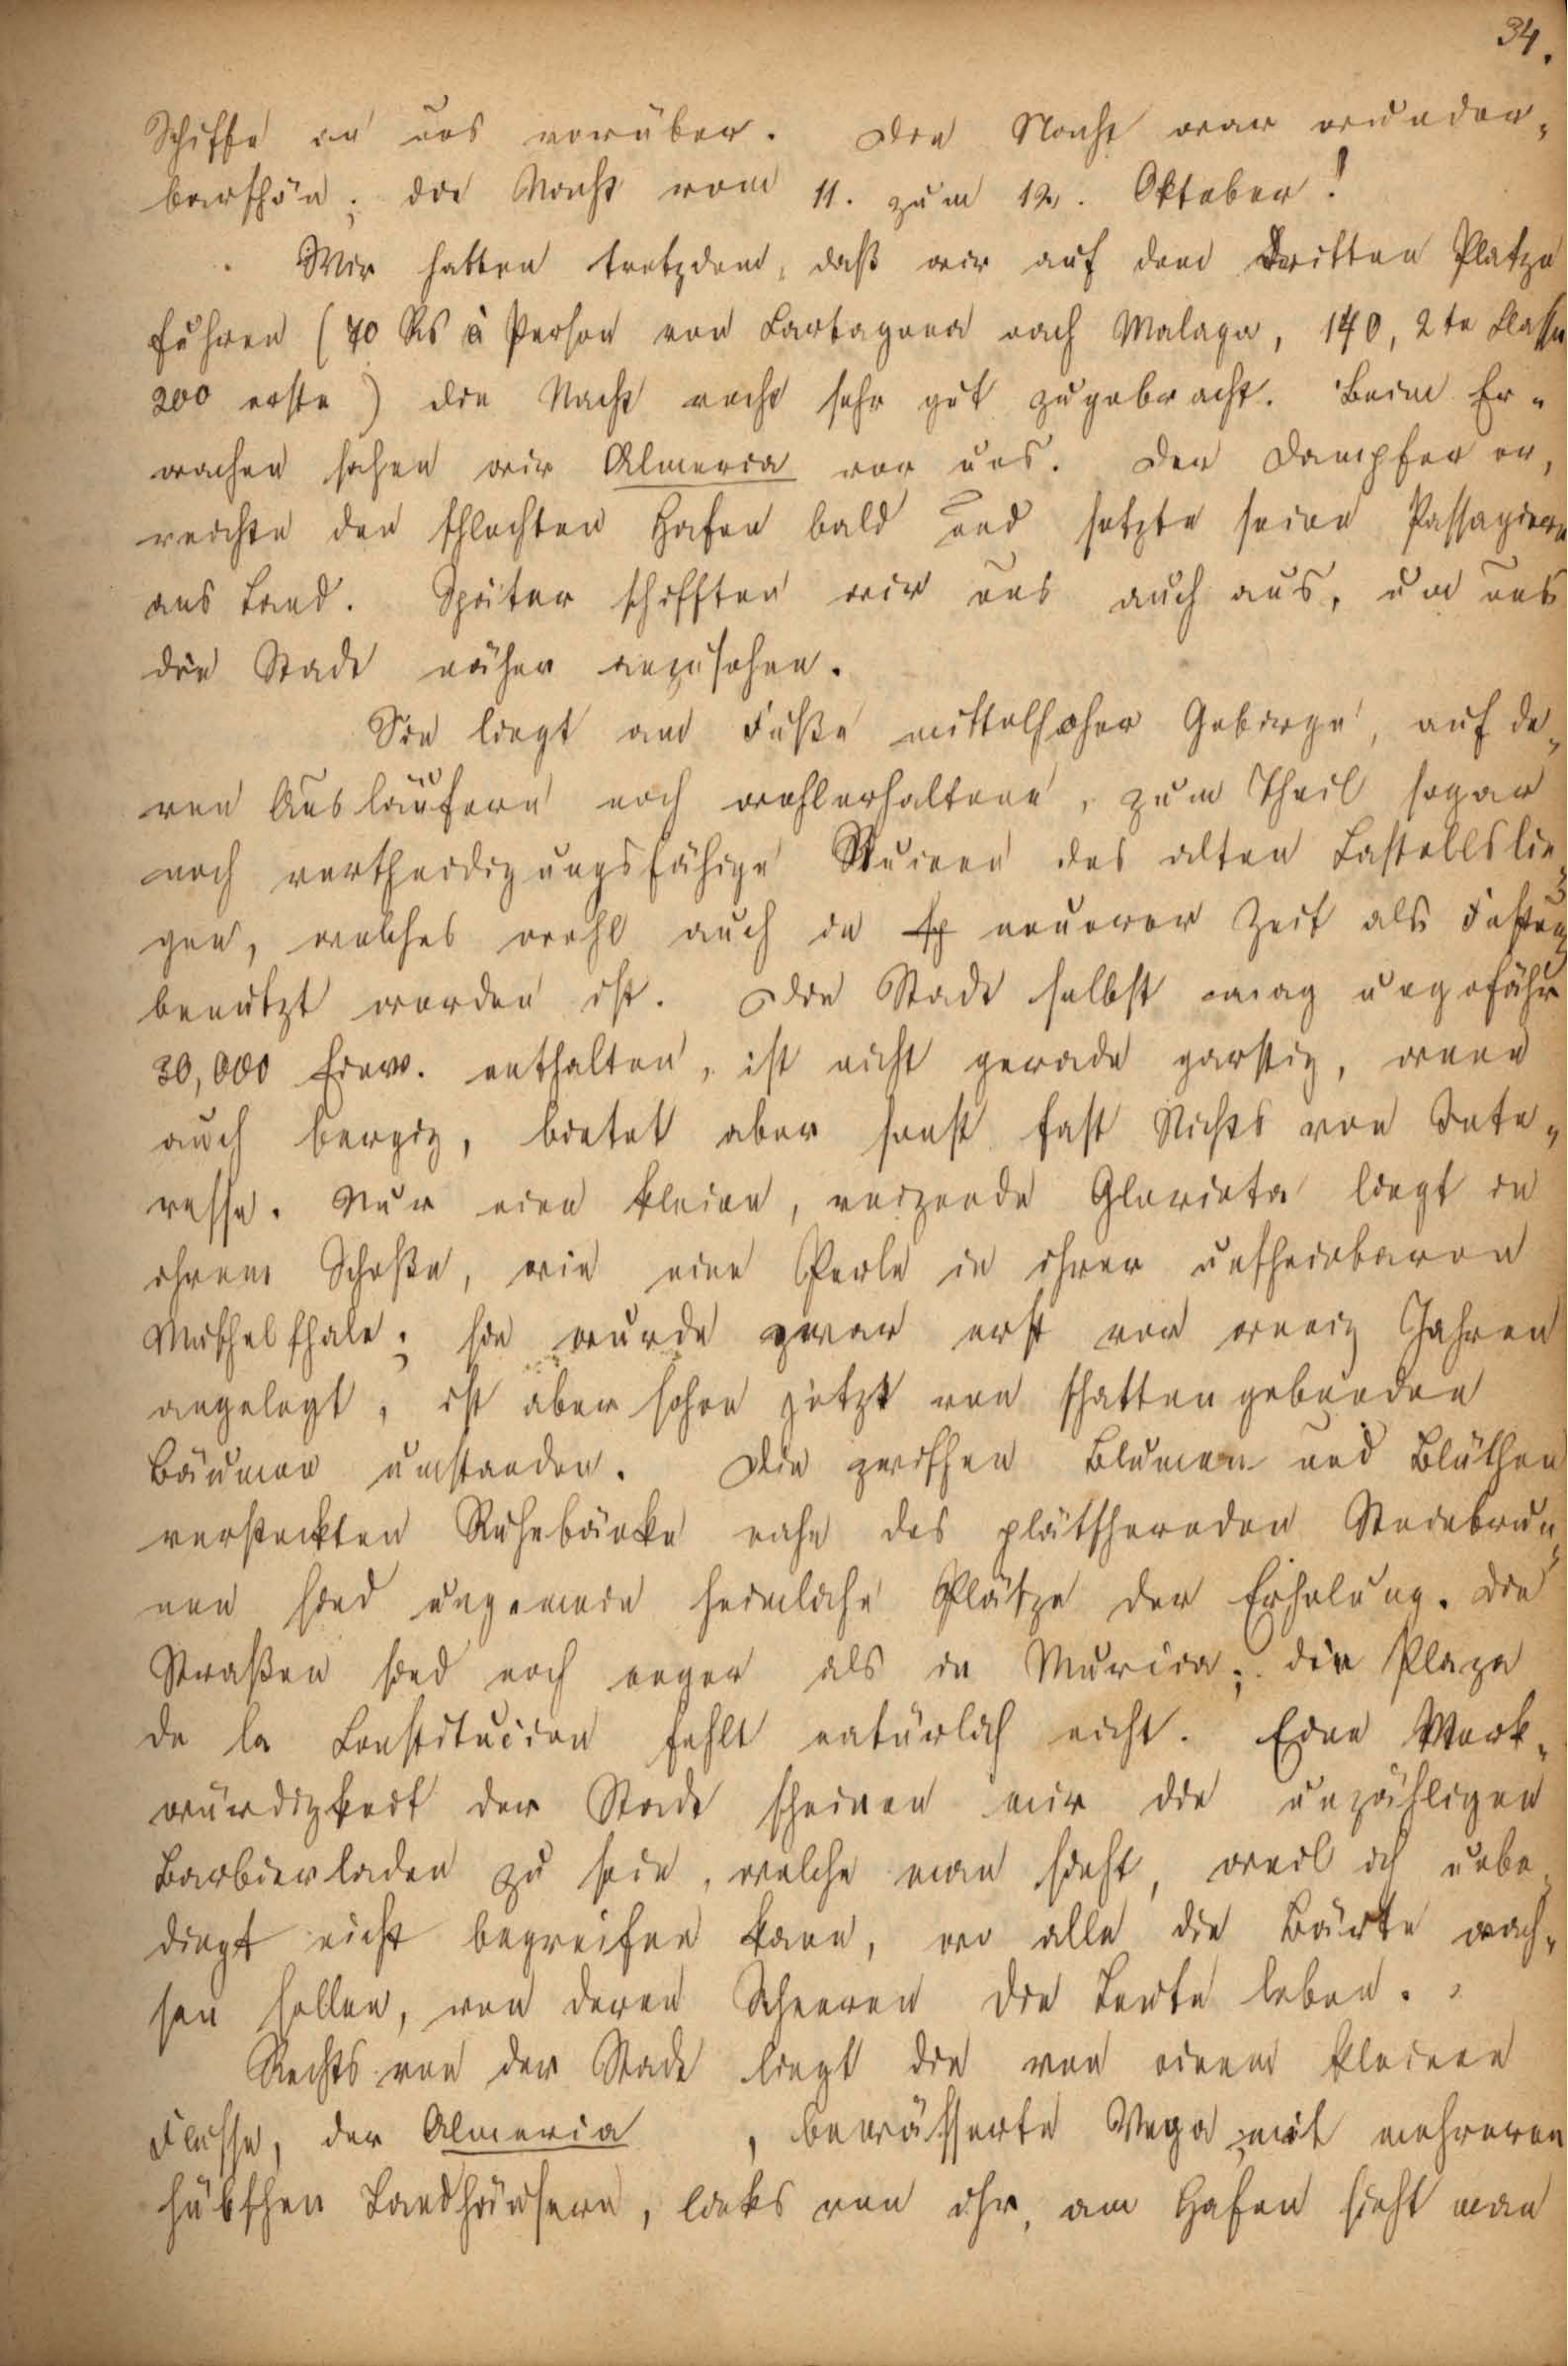 34.
Schiffe an uns vorüber. Die Nacht war wunder„
barschön; die Nacht vom 11. zum 12. Oktober!
Wir hatten trotzdem, daß wir auf dem dritten Platze
fuhren (70 Rs à Person von Cartagena nach Malaga, 140, 2te Classe
200 erste) die Nacht recht sehr gut zugebracht. Beim Er„
wachen sahen wir Almeria vor uns. Der Dampfer er„
reichte den schlechten Hafen bald und setzte seine Passagiere
ans Land. Später schifften wir uns auch aus, um uns
die Stadt näher anzusehen.
Sie liegt am Fuße mittelhoher Gebirge, auf de„
ren Ausläufern noch wohlerhaltene, zum Theil sogar
noch vertheidigungsfähige Ruinen des alten Castells lie„
gen, welches wohl auch in sp neuerer Zeit als Festung
benutzt worden ist. Die Stadt selbst mag ungefähr
30,000 Einw. enthalten, ist nicht gerade garstig, wenn
auch bergig, bietet aber sonst fast Nichts von Inte„
resse. Nur eine kleine, reizende Glorieta liegt in
ihrem Schoße, wie eine Perle in ihrer unscheinbaren
Muschelschale; sie wurde zwar erst vor wenig Jahren
angelegt, ist aber schon jetzt von schattengebenden
Bäumen umstanden. Die zwischen Blumen und Blüthen
versteckten Ruhebänke nahe des plätschernden Steinbrun„
nen sind ungemein heimliche Plätze der Erholung. Die
Straßen sind noch enger als in Murcia; die Plaza
de la Constitucion fehlt natürlich nicht. Eine Merk„
würdigkeit der Stadt scheinen mir die unzähligen
Barbierladen zu sein, welche man sieht, weil ich unbe„
dingt nicht begreifen kann, wo alle die Bärte wach„
sen sollen, von deren Scheeren die Leute leben.
Rechts von der Stadt liegt die von einem kleinen
Flusse, der Almeria , bewässerte Vega mit mehreren
hübschen Landhäusern, links von ihr, am Hafen sieht man